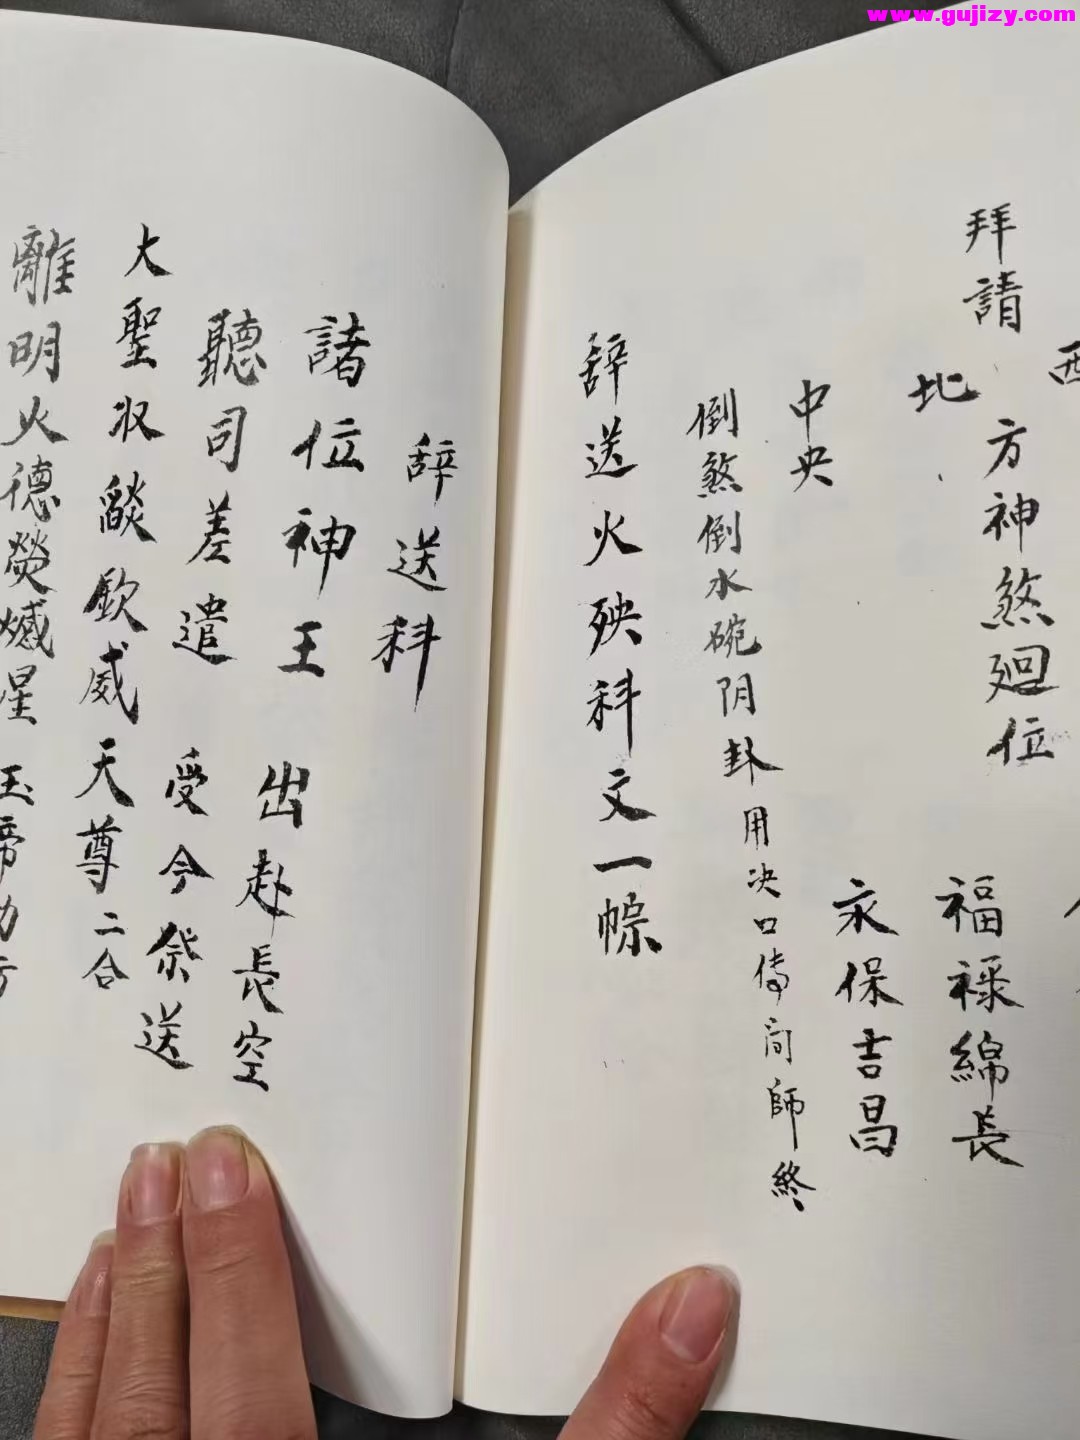 www.gujizy.com
西
拜請 方神煞廻位
北
福祿綿長
中央
永保吉昌
倒煞倒水碗阴卦用决口傳问師終
辞送火殃科文一幖
辞送科
諸位神王 出赴長空
聽司差遣 受今祭送
大聖収燄欽威天尊二合
離明火德熒
星 玉帝
方